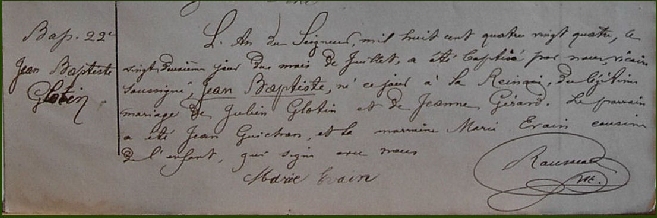 Bap. 22e
Jean Baptiste
Glotin
L'An du Seigneur, mil huit cent quatre vingt quatre, le
vingt deuxième jour du mois de Juillet, a été baptisé par nous vicaire
soussigné, Jean Baptiste, né ce jour à la, du légitime
mariage de Julien Glotin et de Jeanne Gérard. Le parrain
a été Jean Guichon, et la marraine Marie Erain cousine
de l'enfant, qui signe avec nous
Marie Erain